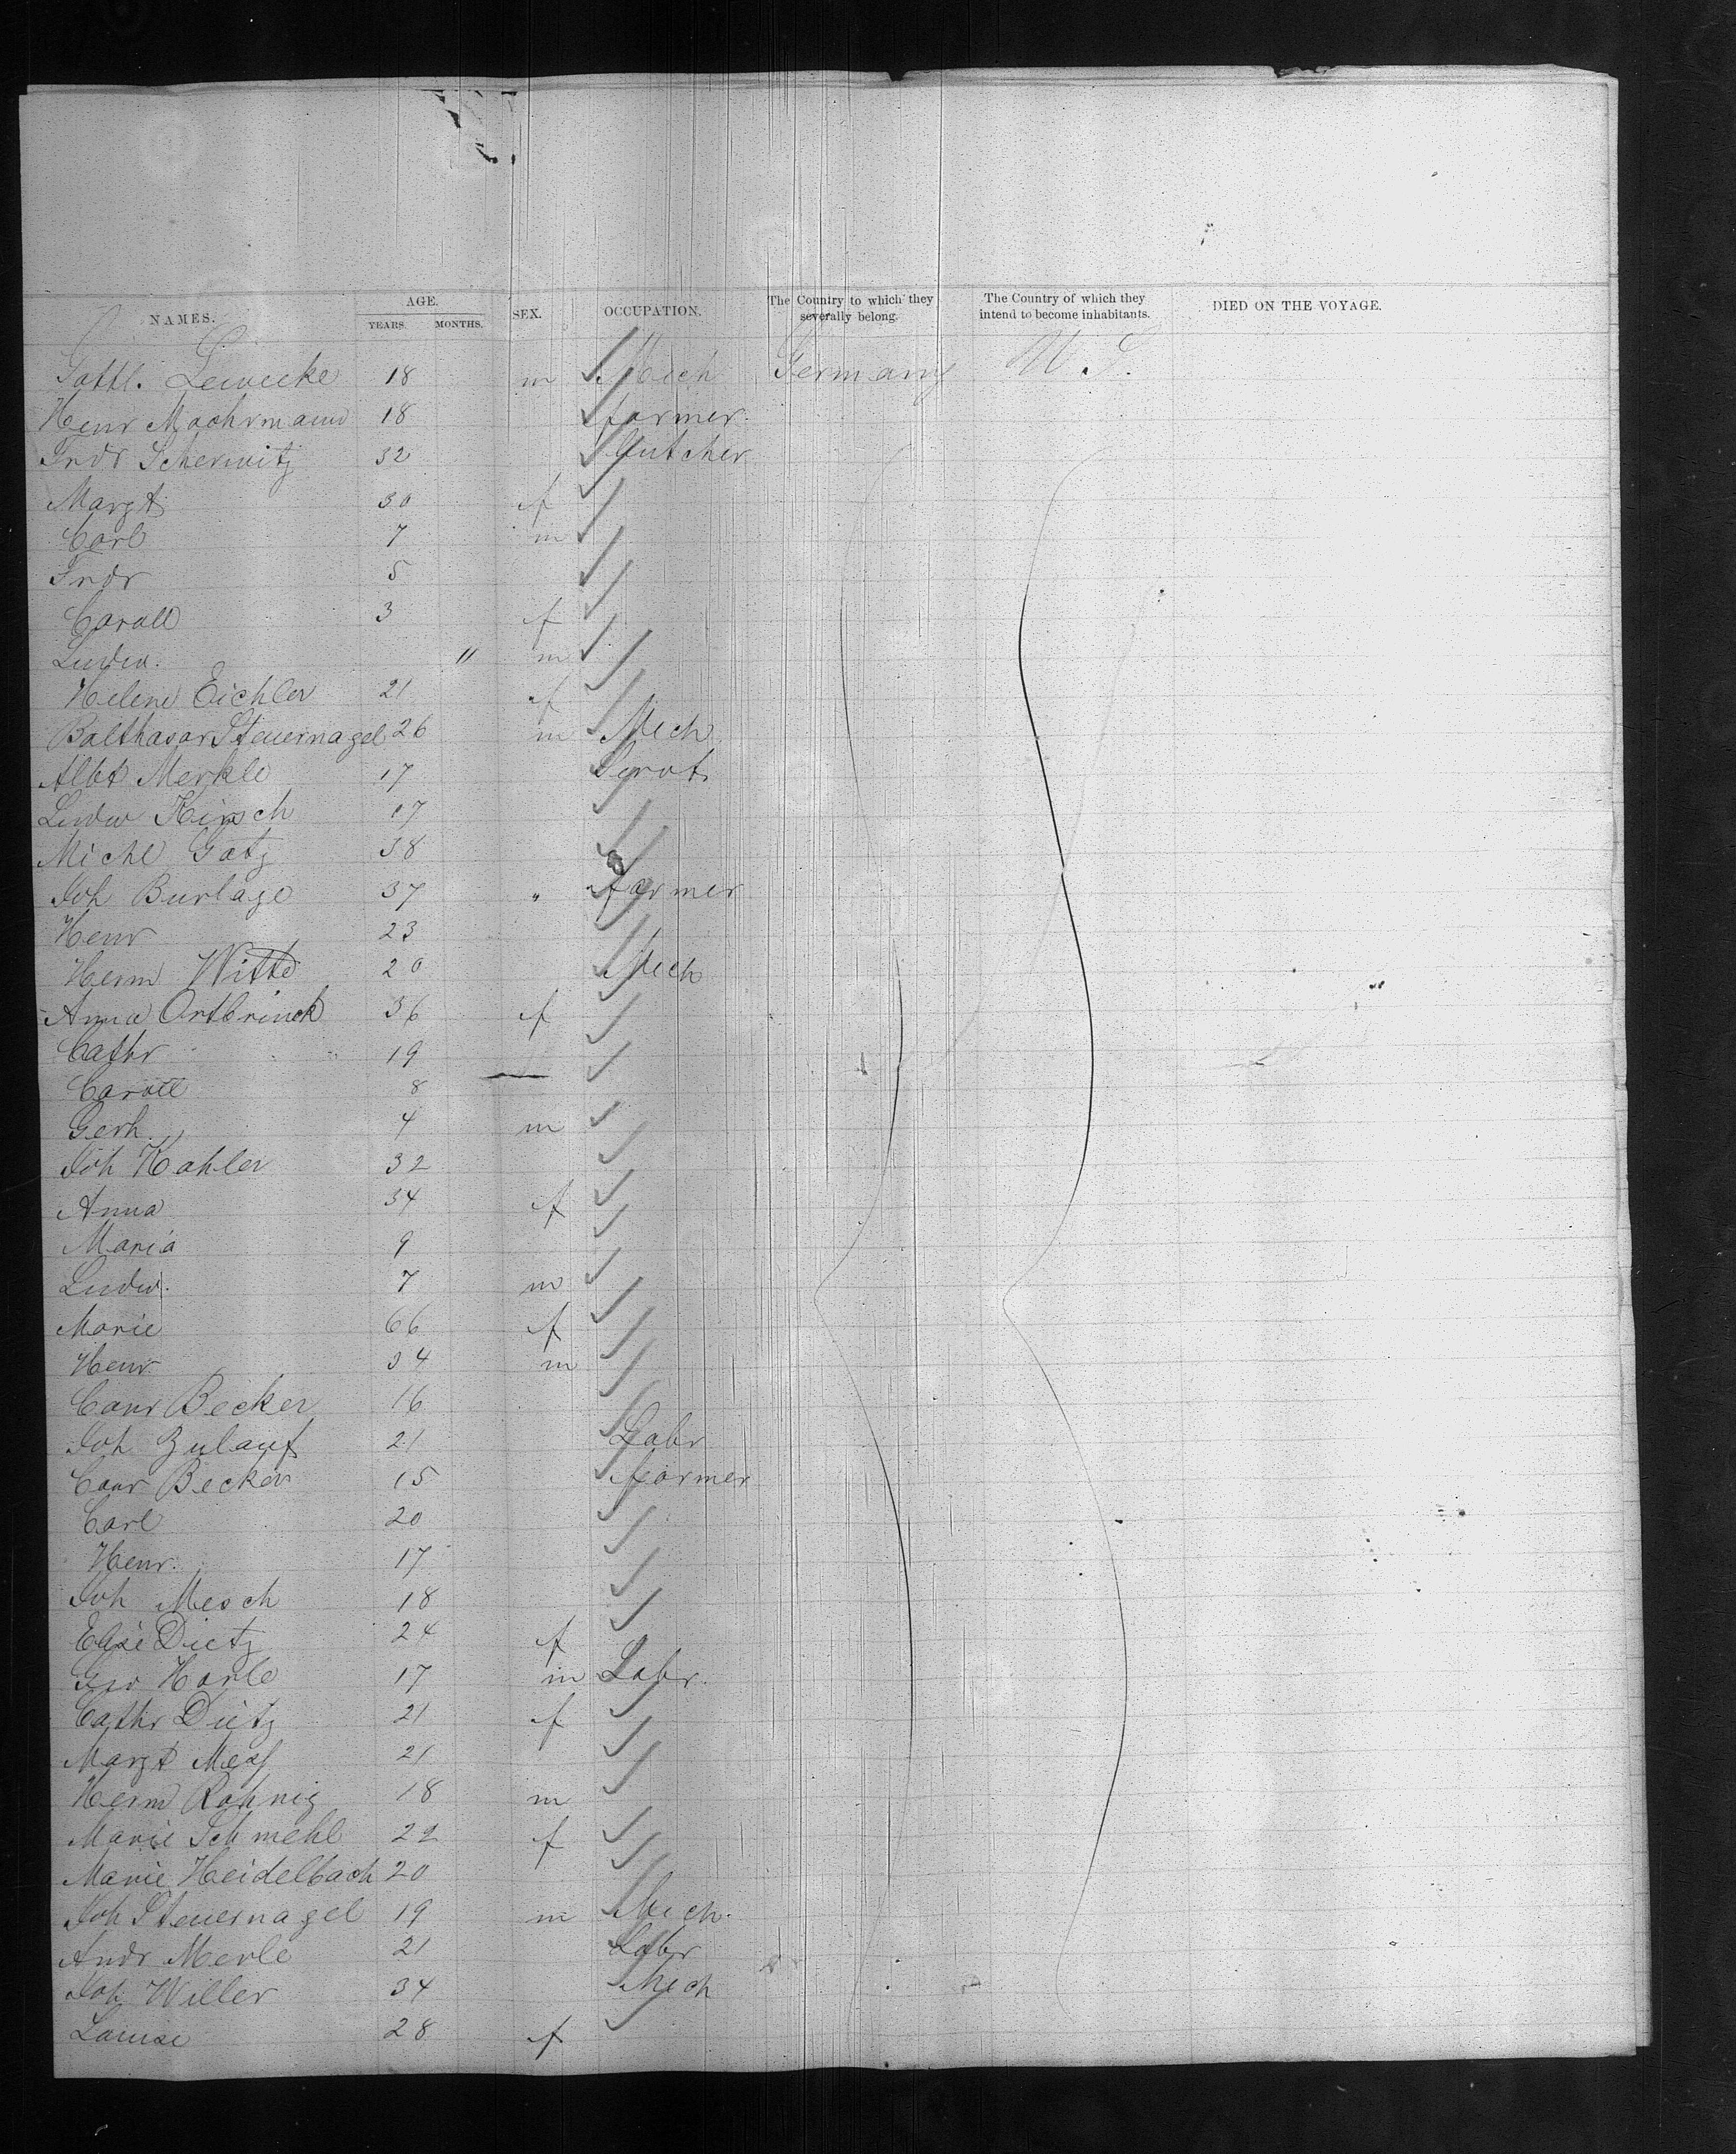 NAMES. AGE. YEARS. MONTHS. SEX. OCCUPATION. The Country to which they severally belong. The Country of which they intend to become inhabitants. DIED ON THE VOYAGE.
Gottl. Lewecke 18 m Mech Germany U. S.
Henr Moohrmann 18 farmer
Frdr Scherwitz 32 Butcher
Margt 30 f
Carl 7 m
Frdr 5
Caroll 3 f
Ludw. 11 m
Helene Eichler 21 f
Balthasar Steuernagel 26 m Mech
Albt Merkle 17 Servt
Ludw Hirsch 17
Michl Gotz 38
Joh Burlage 37 " farmer
Henr 23
Herm Witte 20 Mech
Anna Ortbrinck 36 f
Cathr 19
Caroll 8
Gerh. 4 m
Joh Kahler 32
Anna 34 f
Maria 9
Ludw. 7 m
Marie 66 f
Henr 34 m
Conr Becker 16
Joh Zulauf 21 Labr
Conr Becker 15 farmer
Carl 20
Henr. 17
Joh Mesch 18
Elise Dietz 24 f
Geo Horle 17 m Labr.
Cathr Dietz 21 f
Margt 21
Herm Rohnig 18 m
Marie Schmehl 22 f
Marie Heidelbach 20
Joh Steuernagel 19 m Mech.
Andr Merle 21 Labr
Joh Willer 34 Mech
Louise 28 f